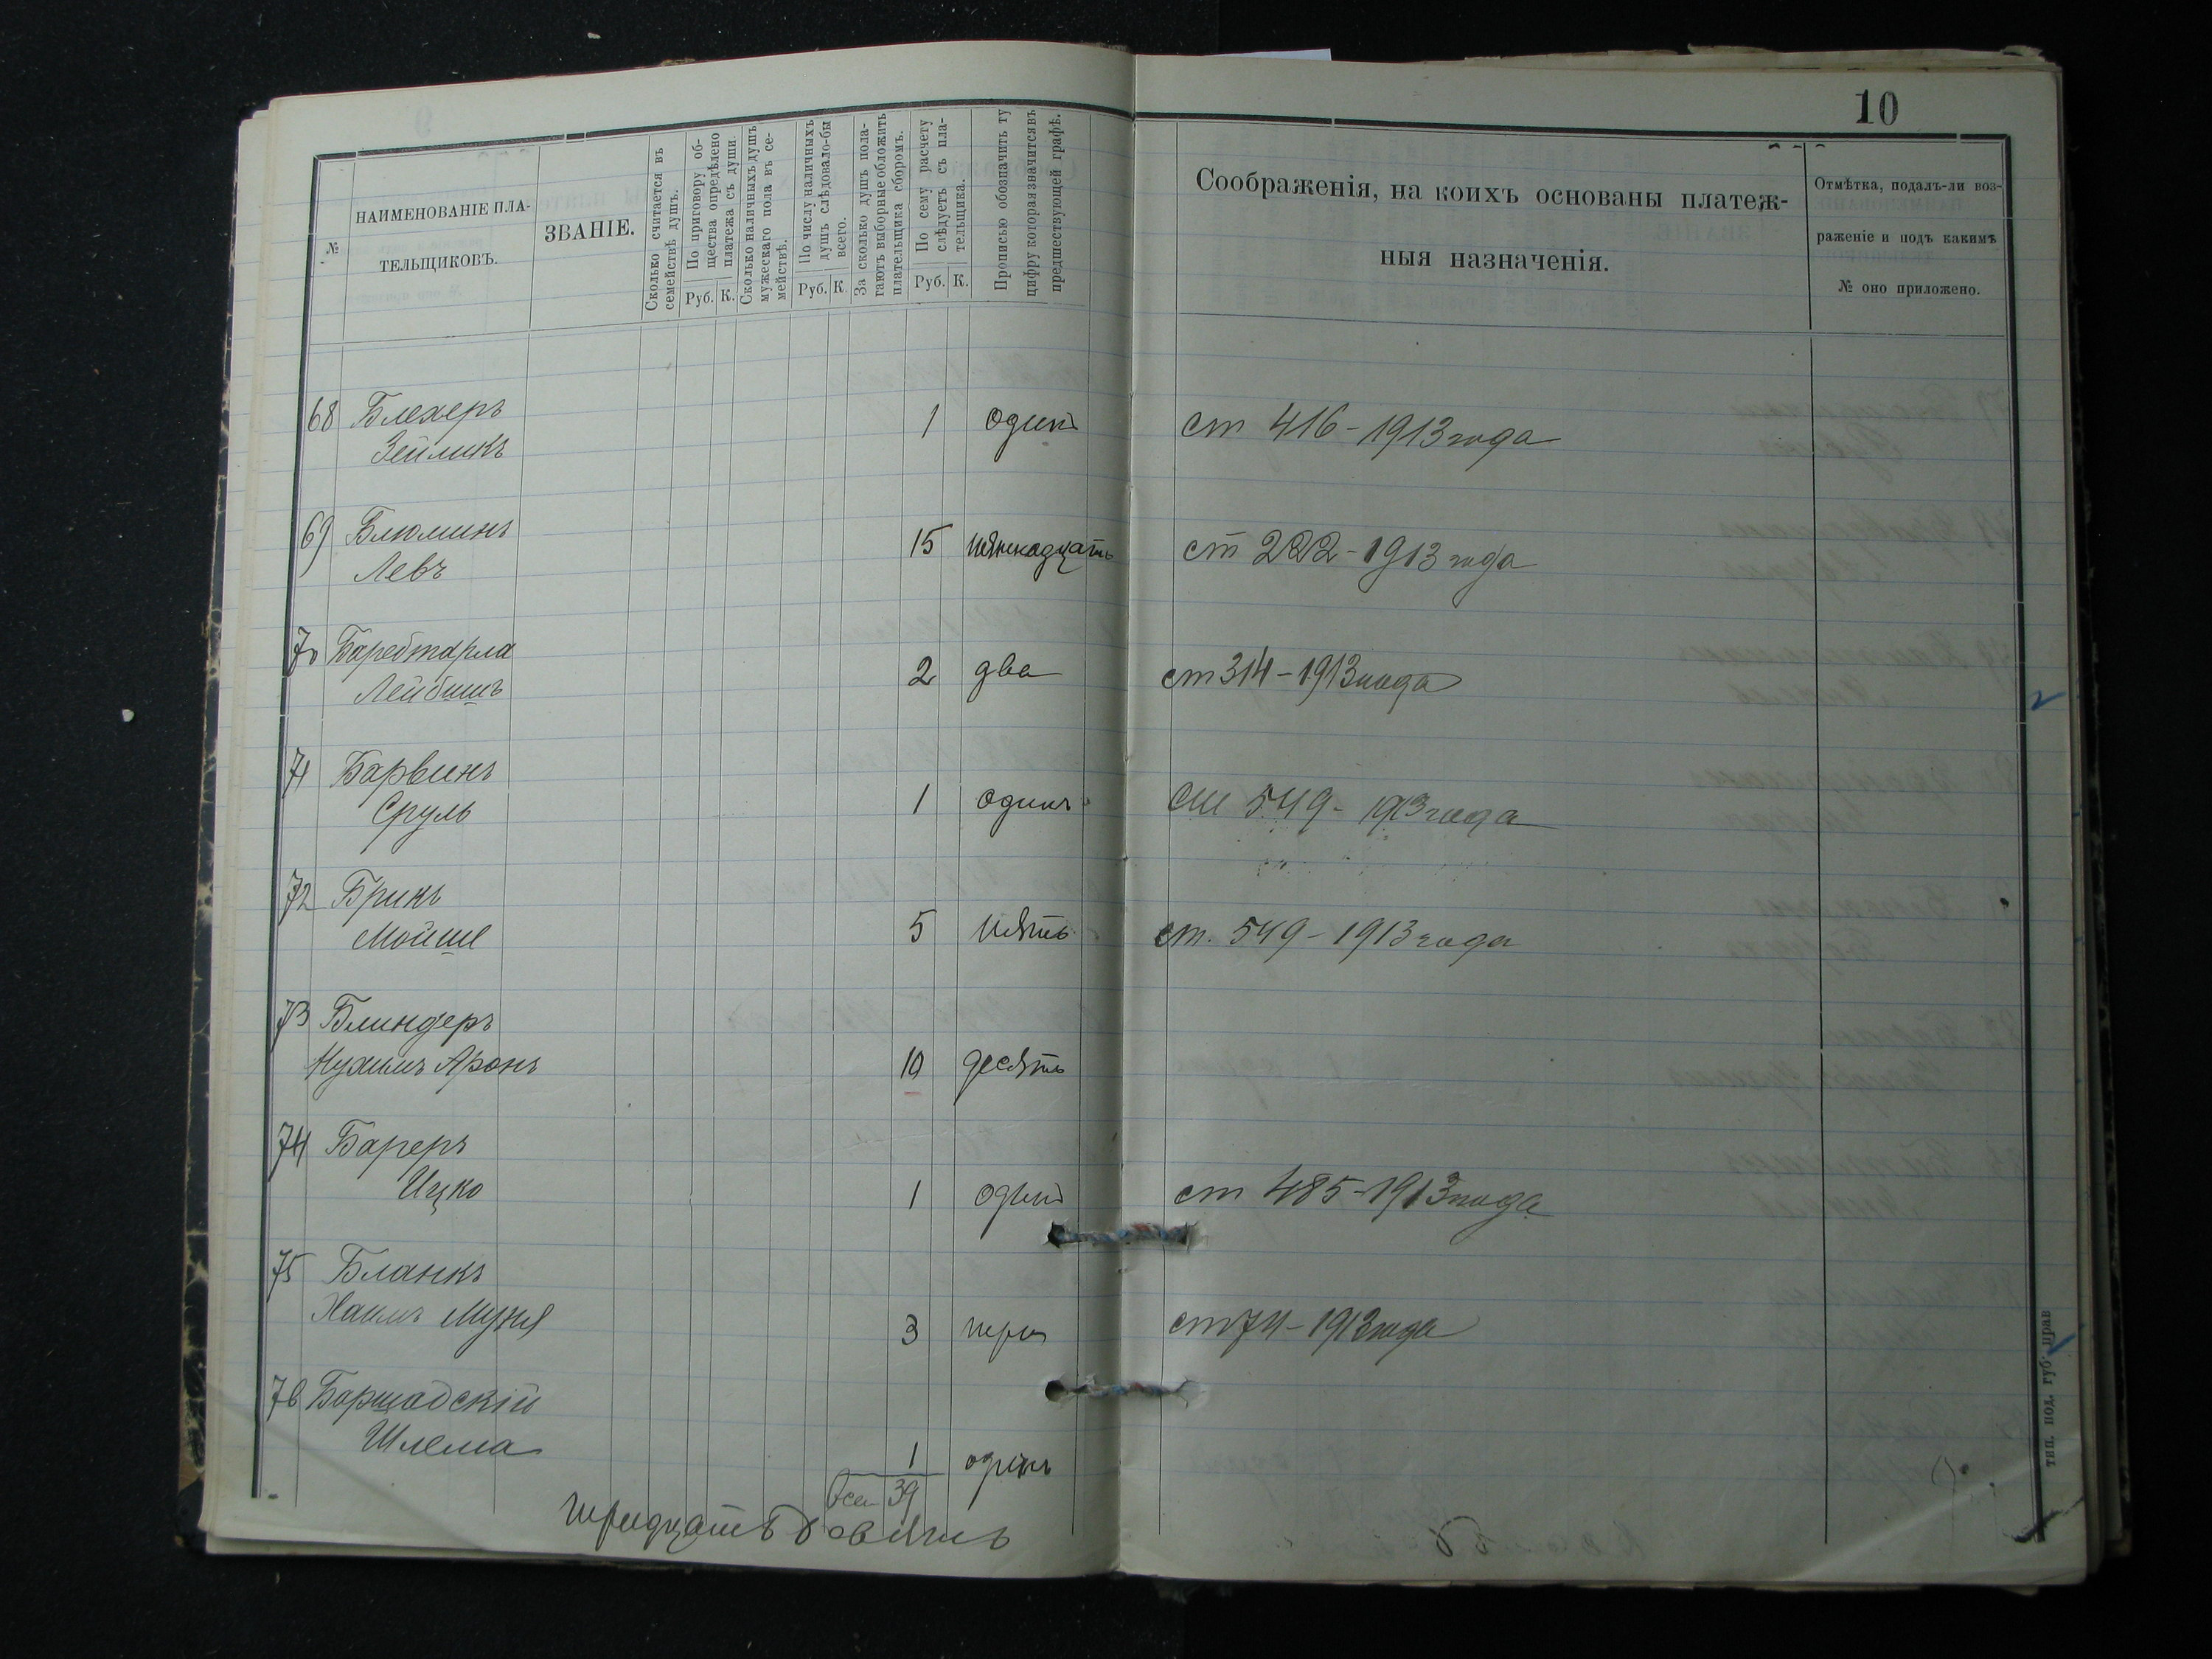 10
№
НАИМЕНОВАНІЕ ПЛА-
ТЕЛЬЩИКОВЪ.
ЗВАНІЕ.
Сколько считается въ
семействѣ душъ.
По приговору об-
щества опредѣлено
платежа съ души.
Руб. К.
Сколько наличныхъ душъ
мужескаго пола въ се-
мействѣ.
По числу наличныхъ
душъ слѣдовало-бы
всего.
Руб. К.
За сколько душъ пола-
гаютъ выборные обложить
плательщика сборомъ.
По сему расчету
слѣдуетъ съ пла-
тельщика.
Руб. К.
Прописью обозначить ту
цифру которая значится въ
предшествующей графѣ.
Соображенія, на коихъ основаны платеж-
ныя назначенія.
Отмѣтка, подалъ-ли воз-
раженіе и подъ какимъ
№ оно приложено.
68 Блехеръ
Зейликъ 1 одинъ ст 416-1913 года
69 Блюминъ
Левъ 15 пятнадцать ст 222-1913 года
70
Лейбишъ 2 два ст 314-1913 года
71 Барвинъ
Сруль 1 одинъ ст 549-1913 года
72 Брикъ
Мойше 5 пять ст. 549-1913 года
73 Блиндеръ
Нухимъ Аронъ 10 десять
74 Бареръ
Ицко 1 одинъ ст 485-1913 года
75 Бланкъ
Хаимъ Муня 3 три ст 74-1913 года
76 Боршадскій
Шлема 1 одинъ
39
тридцать девять
тип. под. губ. прав